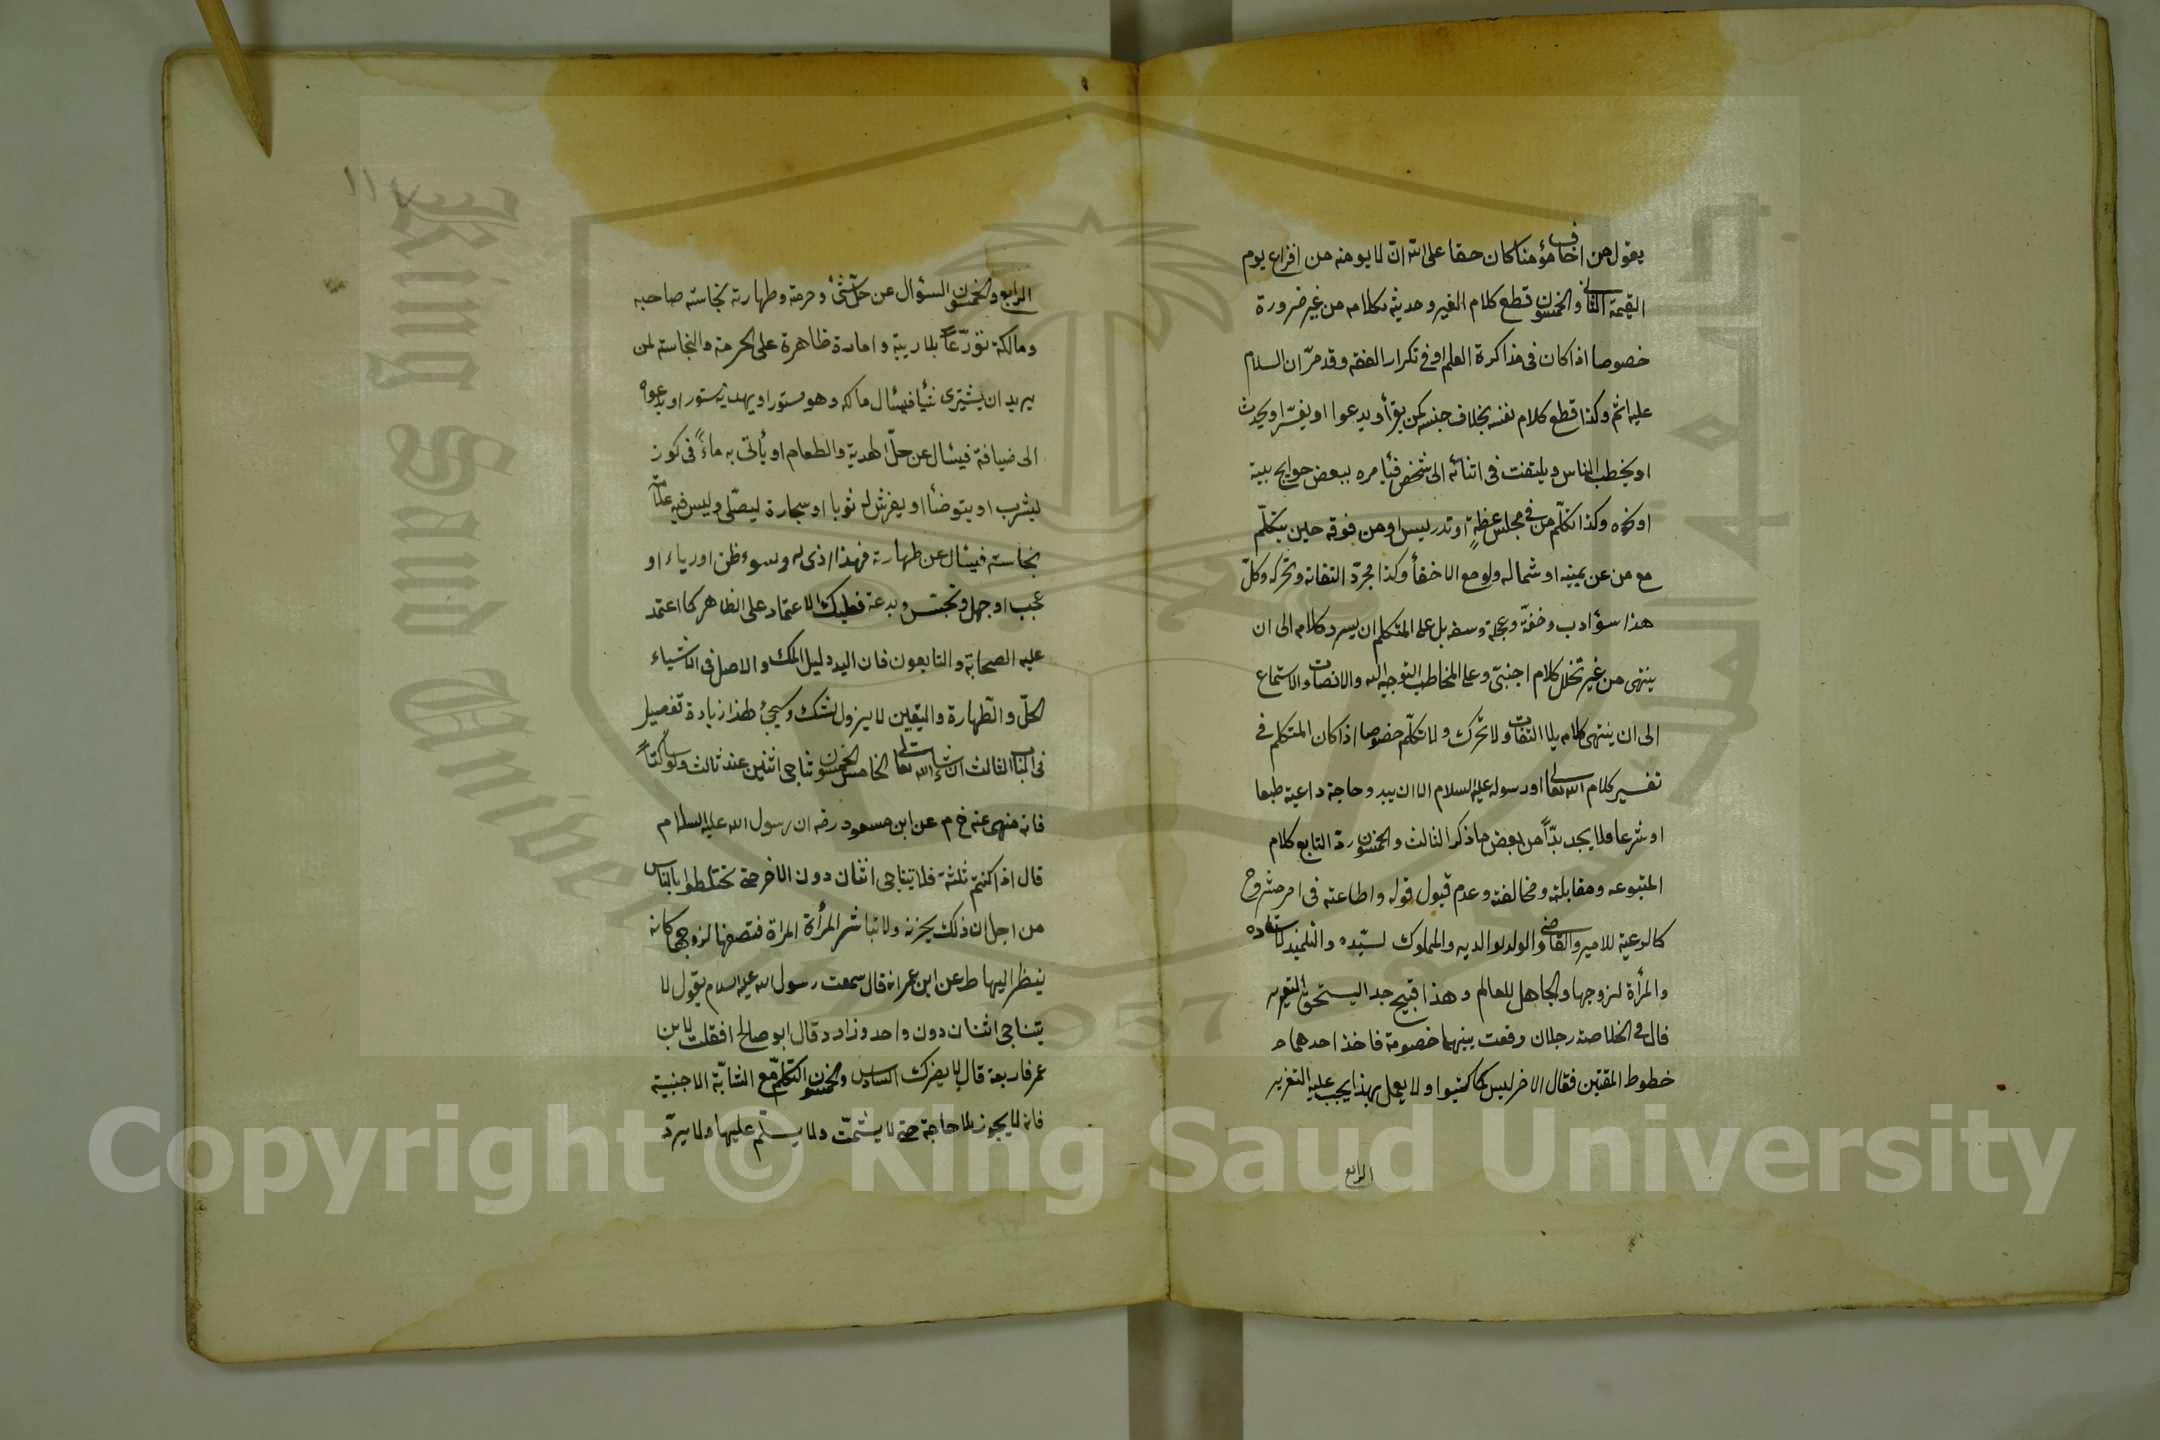 يقول من اخاف مؤمنا كان حقا على الله ان لا يومنه من افزاع يوم
القيمة الثانى والخمسون قطع كلام الغير وحديثه بكلامه من غير ضرورة
خصوصا اذا كان فى مذاكرة العلم او فى تكرار الفقه وقد مرّ ان السلام
عليه اثم وكذا قطع كلام نفسه بخلاف جنسه كمن يقرأ ويدعوا او يفسّر او يحدث
او يخطب الناس ويلتفت فى اثنائه الى شخص فيأمره ببعض حوايج بيته
او نحوه وكذا تكلّم من فى مجلس عظةٍ او تدريس او من فوقه حين يتكلّم
مع من عن يمينه او شماله ولو مع الاخفأ وكذا مجرّد التفاته وتحركه وكلّ
هذا سؤ ادب وخفّة وعجلة وسفه بل على المتكلم ان يسرد كلامه الى ان
ينتهى من غير تخلل كلام اجنبىّ وعلى المخاطب التوجيه اليه والانصات والاستماع
الى ان ينتهى كلامه بلا التفات ولا تحرك ولا تكلّم خصوصا اذا كان المتكلم فى
تفسير كلام الله تعالى او رسوله عليه السلام الا ان يبدو حاجة داعية طبعا
او شرعا فلا يجد بدّاً من بعض ما ذكر الثالث والخمسون ردّ التابع كلام
المتبوعه ومقابلته ومخالفته وعدم قبول قوله واطاعته فى امر مشروع
كالرعية للامير والقاضى والولد لوالديه والمملوك لسيّده والتلميذ لاستاده
والمرأة لزوجها والجاهل للعالم وهذا قبيح جدا يستحق التعزير
قال فى الخلاصة رجلان وقعت بينهما خصومة فاخذ احدهما
خطوط المفتين فقال الاخر ليس كما كتبوا ولا يعمل بهذا يجب عليه التعزير
الرابع
١١٧
الرابع والخمسون السؤال عن حلّ شئ وحرمته وطهارته نجاسته صاحبه
ومالكه تورّعاً بلا ريبة وامارة ظاهرة على الحرمة والنجاسة لمن
يريد ان يشترى شيأ فيسئال مالكه وهو مستور او يهديه مستور او يدعوه
الى ضيافة فيسئال عن حلّ الهدية والطعام او يأتى به ماءً فى كوز
ليشرب او يتوضأ او يفرش له ثوبا او سجادة ليصلّى وليس فيه علامة
نجاسته فيسئال عن طهارته فهذا اذى له وسوء ظن او رياء او
عجب او جهل وتجسّس وبدعة فعليك الاعتماد على الظاهر كما اعتمد
عليه الصحابة والتابعون فان اليد دليل الملك والاصل فى الاشياء
الحلّ والطهارة واليقين لا يزول بالشك وسيجئ لهذا زيادة تفصيل
فى الباب الثالث ان شاء الله تعالى الخامس والخمسون تناجى اثنين عند ثالث ولو ساكتاً
فانه منهى عنه خ م عن ابن مسعود رضه ان رسول الله عليه السلام
قال اذا كنتم ثلثة فلا يتناجى اثنان دون الاخر حتى تختلطوا بالناس
من اجل ان ذلك يحزنه ولا تباشر المرأة المرأة فتصفها لزوجها كانه
ينظر اليها ط عن ابن عمر انه قال سمعت رسول الله عليه السلام يقول لا
يتناجى اثنان دون واحد وزاد د قال ابو صالح فقلت لابن
عمر فاربعة قال لا يضرك السادس والخمسون التكلّم مع الشابّة الاجنبية
فانه لا يجوز بلا حاجة حتى لا يشمّت ولا يسلّم عليها ولا يردّ
Copyright © King Saud University
King Saud University
1957